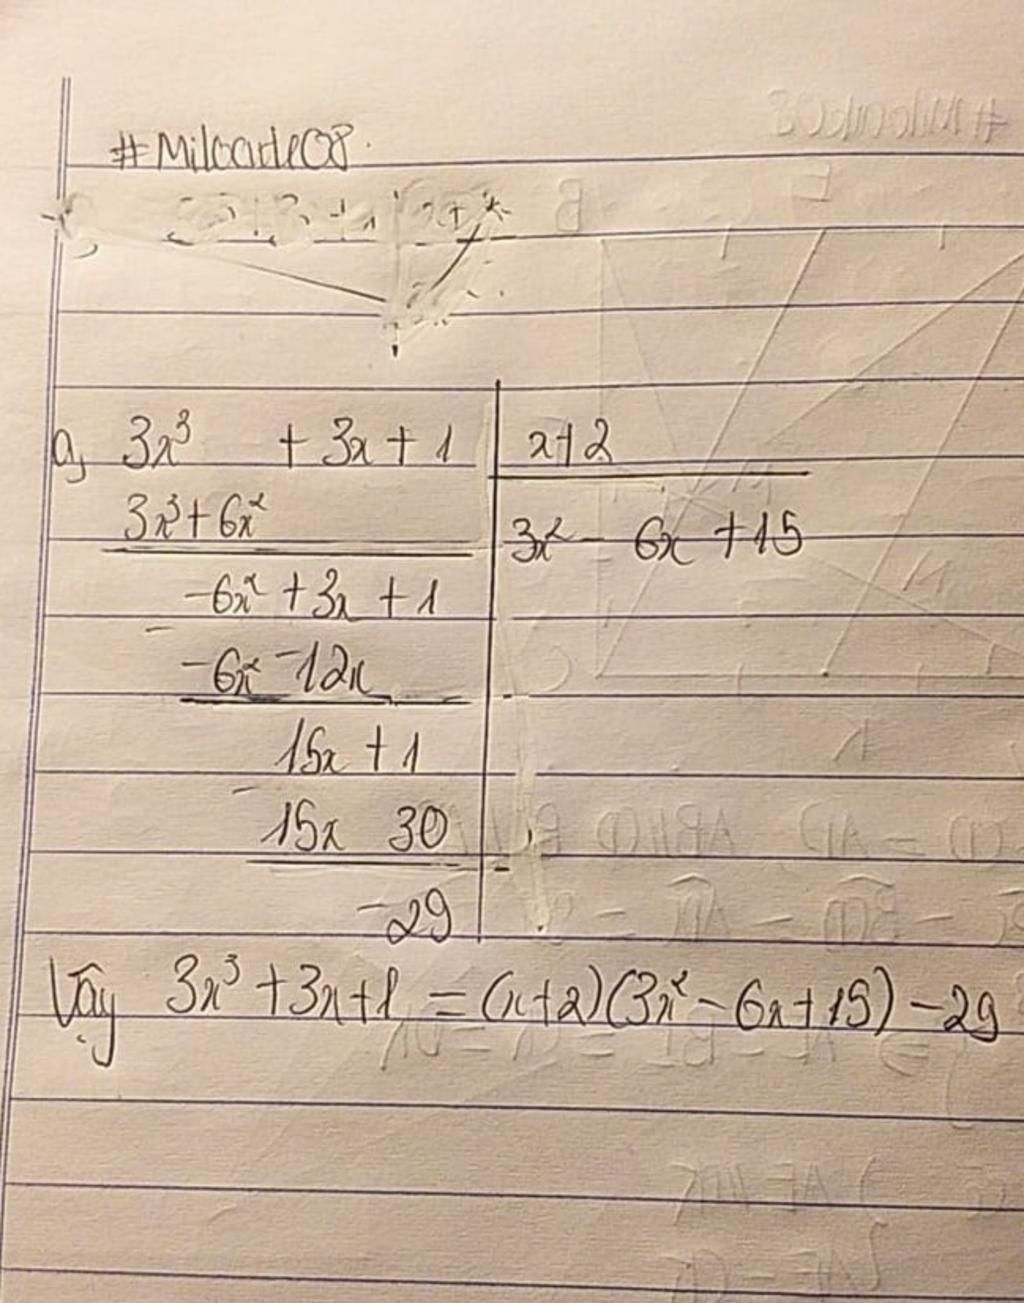 #Miloarde08.
a, 3x³ + 3x + 1 | x+2
3x³+6x² | 3x² - 6x +15
-6x² +3x +1
- -6x² -12x
15x + 1
- 15x 30
-29
Vậy 3x³ +3x+1 = (x+2)(3x² - 6x+15) -29